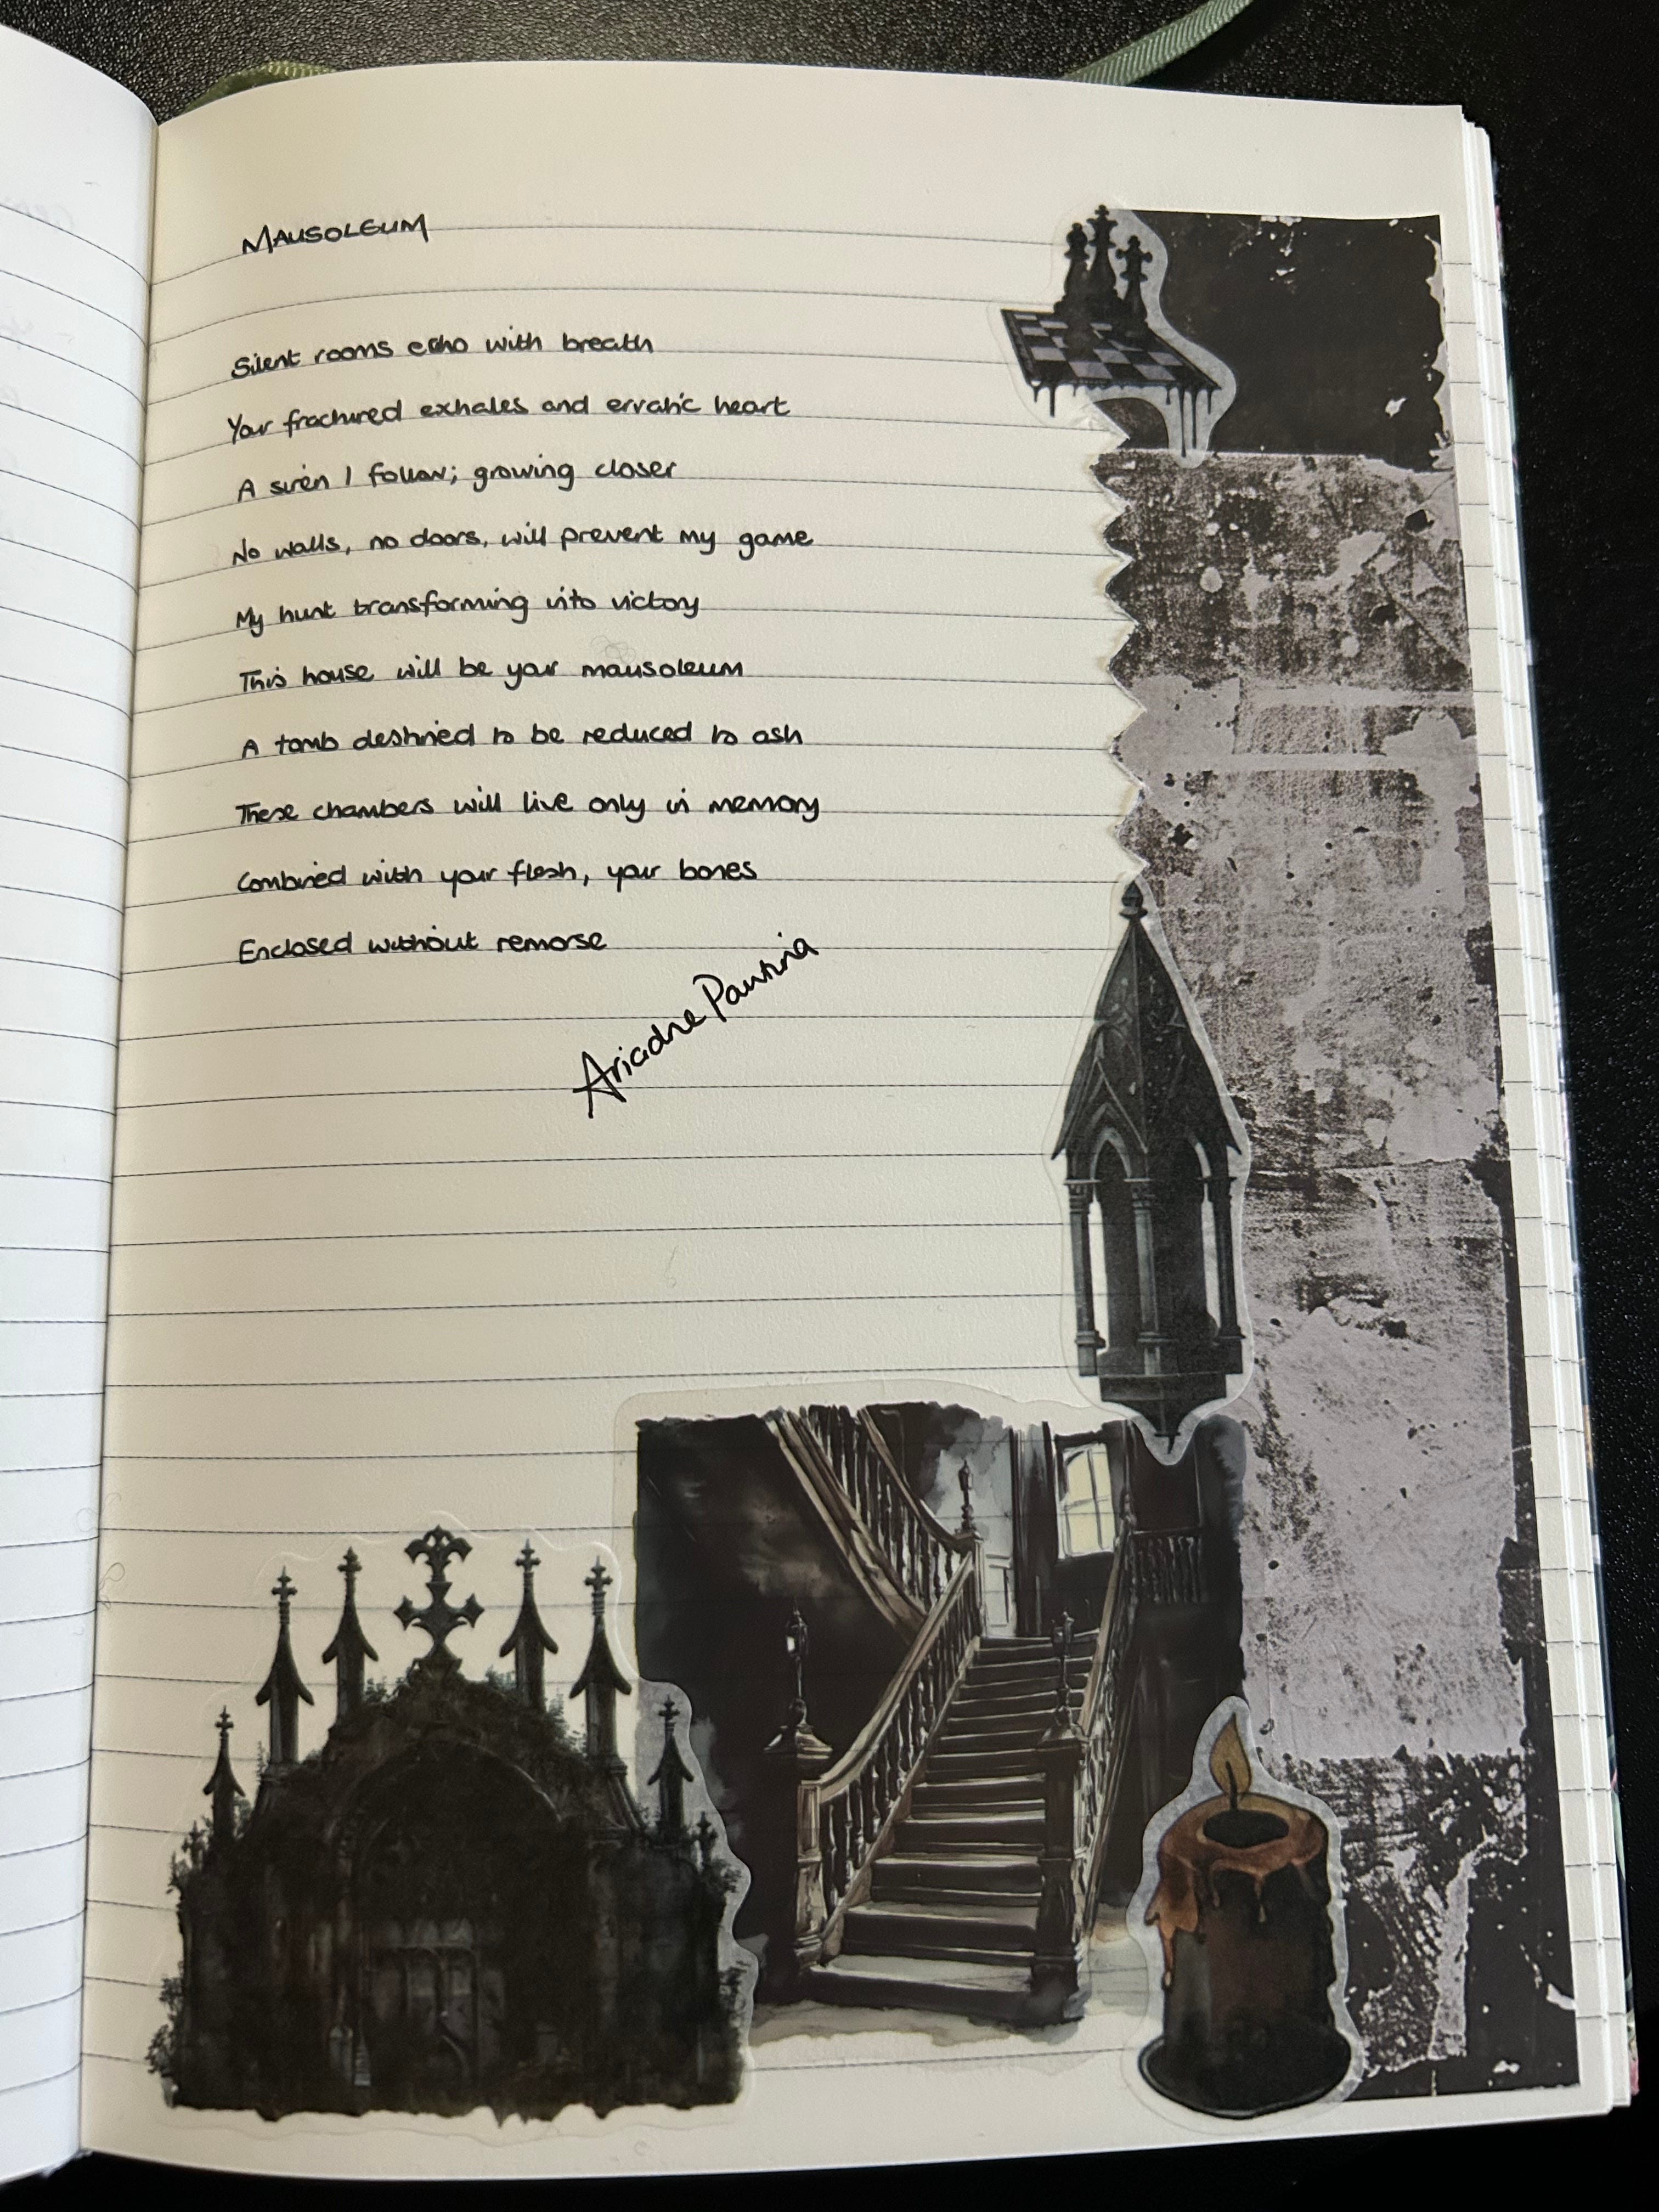 MAUSOLEUM
Silent rooms echo with breath
Your fractured exhales and erratic heart
A siren I follow; growing closer
No walls, no doors, will prevent my game
My hunt transforming into victory
This house will be your mausoleum
A tomb destined to be reduced to ash
These chambers will live only in memory
Combined with your flesh, your bones
Enclosed without remorse
Ariadne